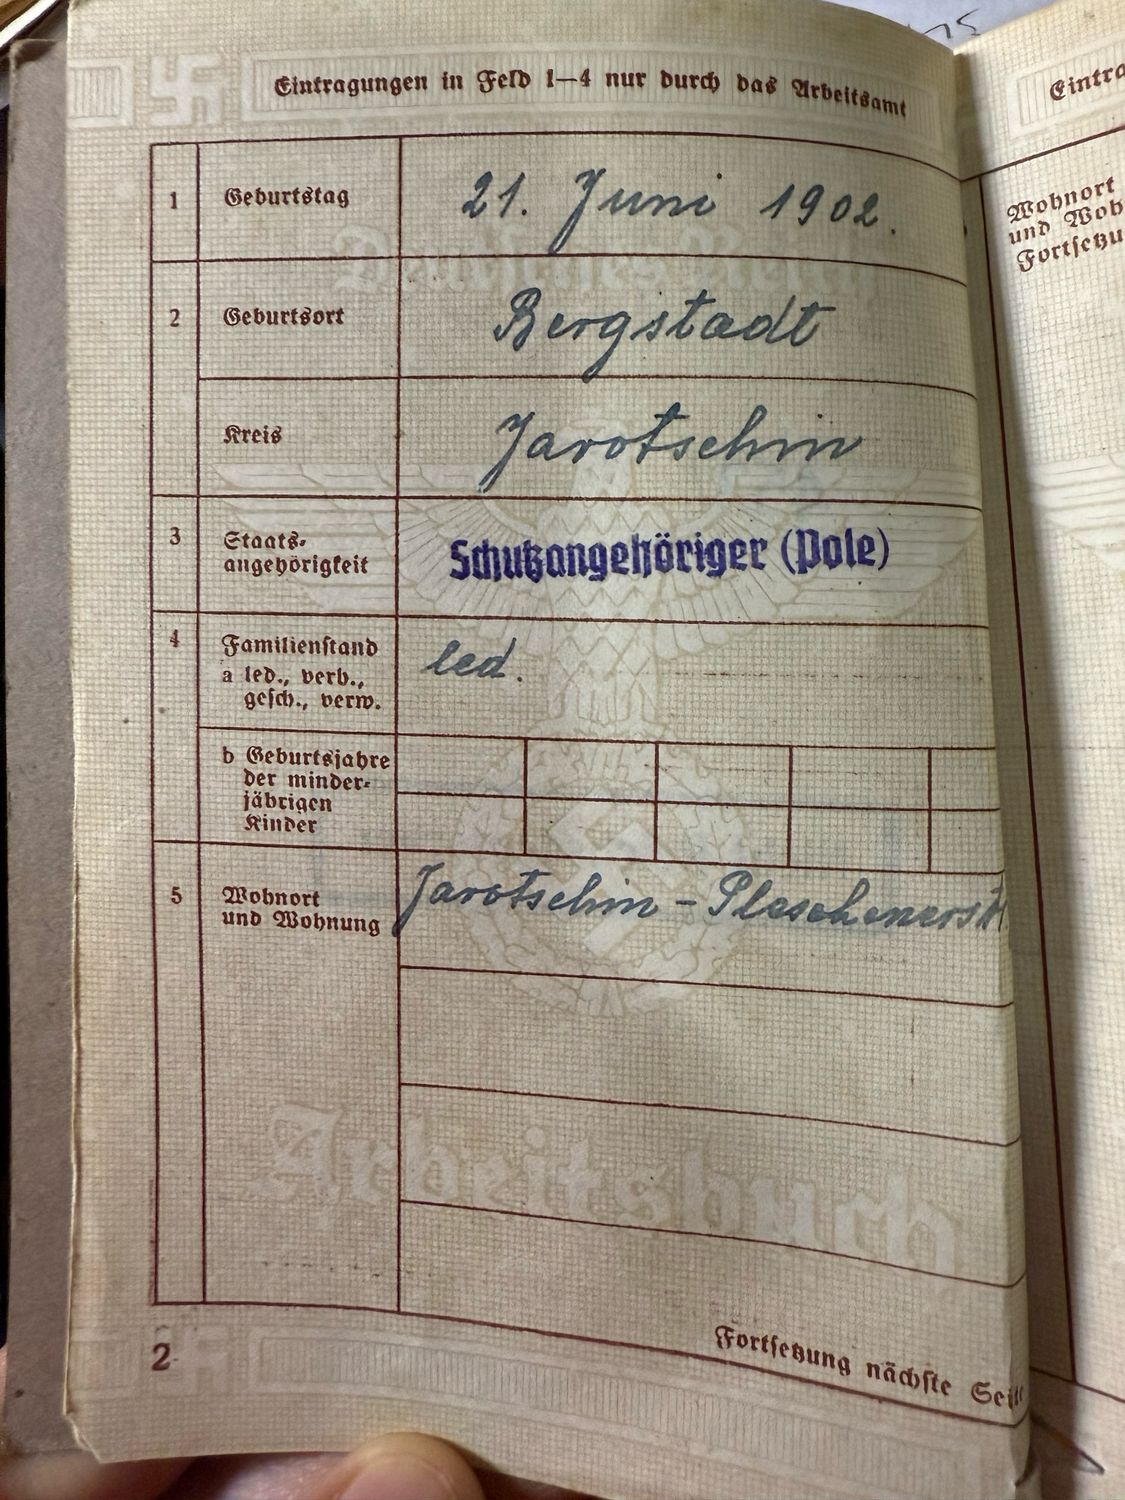 Eintragungen in Feld 1—4 nur durch das Arbeitsamt
1 Geburtstag 21. Juni 1902.
Deutsches Reich
2 Geburtsort Bergstadt
Kreis Jarotschin
3 Staats-
angehörigkeit Schutzangehöriger (Pole)
4 Familienstand
a led., verh.,
gesch., verw.
led.
b Geburtsjahre
der minder-
jährigen
Kinder
5 Wohnort
und Wohnung
Jarotschin - Pleschenerstr.
Arbeitsbuch
Fortsetzung nächste Seite
2
Wohnort
und